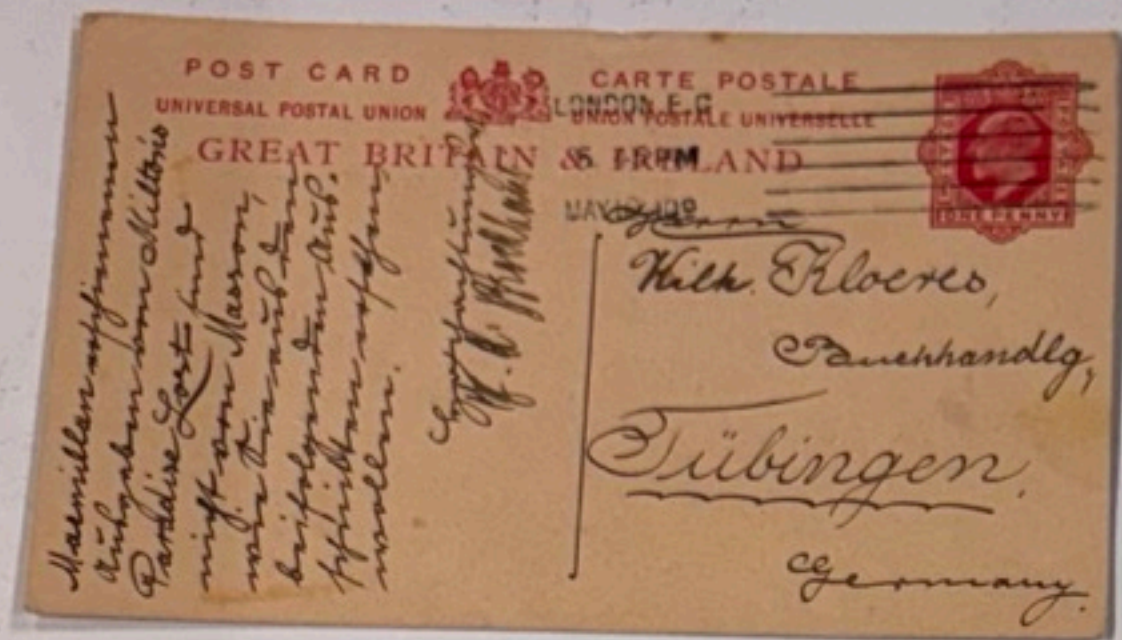 POST CARD CARTE POSTALE
UNIVERSAL POSTAL UNION UNION POSTALE UNIVERSELLE
GREAT BRITAIN & IRELAND
LONDON. E.C
5 PM
MAY 09
ONE PENNY
Herrn
Wilh. Kloeres,
Buchhandlg,
Tübingen.
Germany.
Macmillan erschienenen
Ausgaben von Milton's
Paradise Lost sind
nicht von Masson,
wie Sie aus den
beifolgenden Aus-
schnitten ersehen
wollen.
Hochachtungsvoll